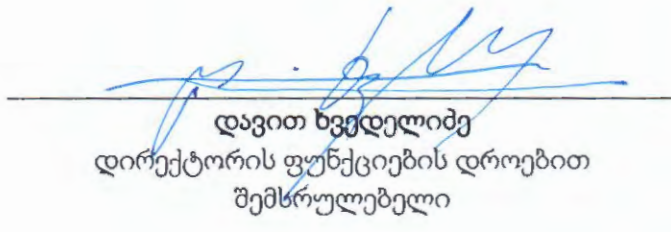 დავით ხვედელიძე
დირექტორის ფუნქციების დროებით
შემსრულებელი